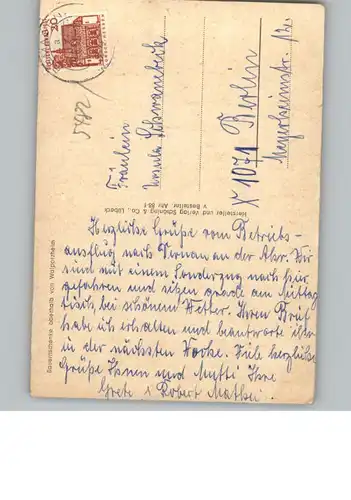 Herzliche Grüße vom Betriebs-
ausflug nach Dernau an der Ahr. Wir
sind mit einem Sonderzug nach hier
gefahren und sitzen grade am Mittag
tisch, bei schönem Wetter. Ihren Brief
habe ich erhalten und beantworte ihn
in der nächsten Woche. Viele herzliche
Grüße Ihnen und Mutti Ihre
Grete u Robert
Fräulein
Ursula Schwanebeck
X 1071 Berlin
Meyerheimstr.
Hersteller und Verlag Schöning & Co., Lübeck
Bauernschenke oberhalb von Walporzheim
20
5482